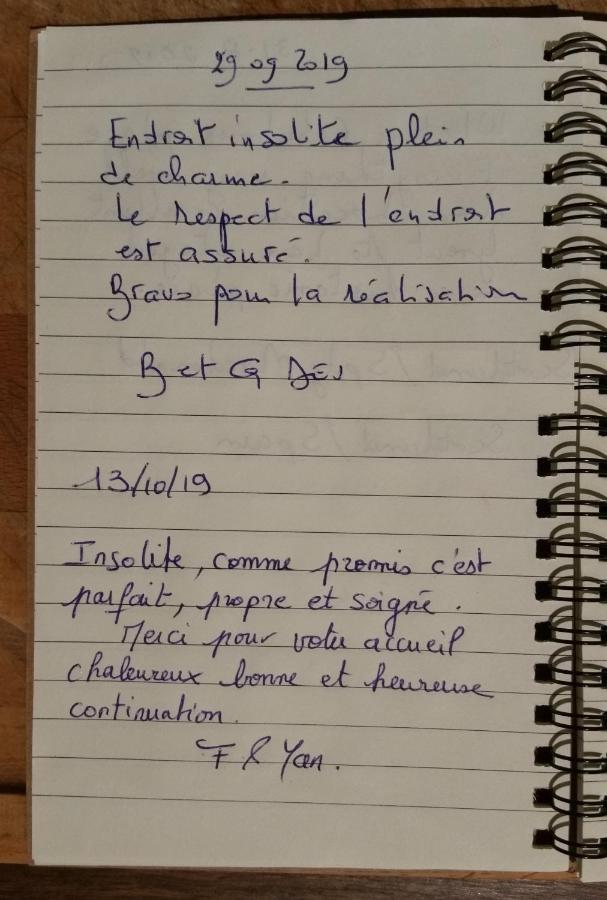 29 09 2019
Endroit insolite plein
de charme.
Le respect de l'endroit
est assuré.
Bravo pour la réalisation
B et G
13/10/19
Insolite, comme promis c'est
parfait, propre et soigné.
Merci pour votre accueil
chaleureux bonne et heureuse
continuation.
F & Yan.